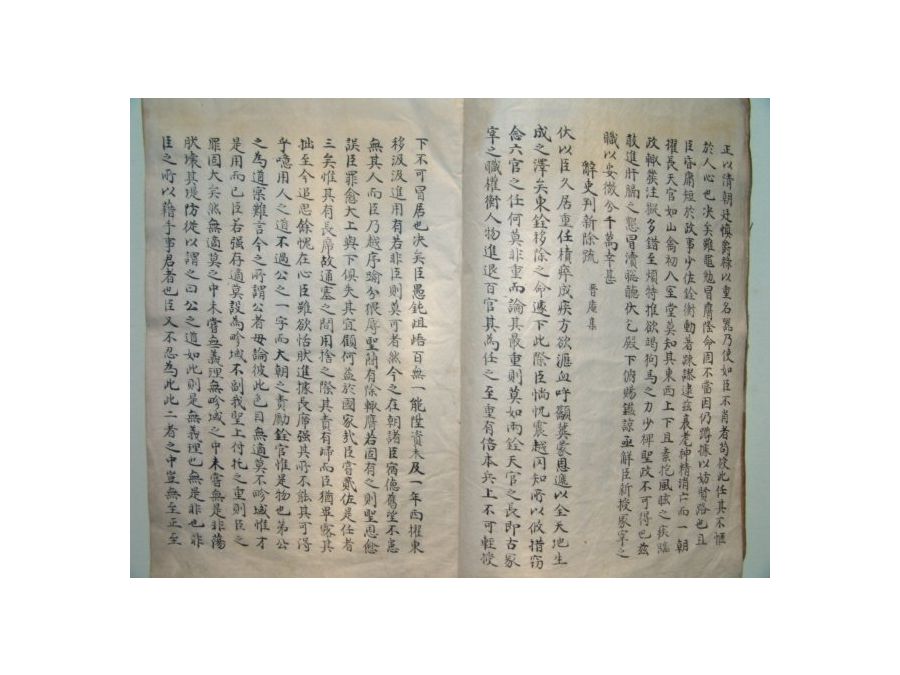 正以清朝建慎爵祿以重名器乃使如臣不肖者苟授此任其不愜
於人心也决矣雖黽勉冒膺隆命固不當因仍蹲據以妨賢路也且
臣昏庸短於政事少佐銓衡動著疎謬逮玆衰老神精消亡而一朝
擢長天官如山龠初入室堂莫知其東西上下且素抱風眩之疾臨
政輒發注擬多錯至煩特推欲竭狗馬之力少裨聖政不可得也玆
敢進肝膈之懇冒瀆聰聽伏乞殿下俯賜鑑諒亟解臣新授冢宰之
職以安微分千萬幸甚
辭吏判新除疏 晉庵集
伏以臣久居重任積瘁成疾方欲瀝血呼顯冀蒙恩遞以全天地生
成之澤矣東銓移除之命遽下此際臣惝怳震越罔知所以攸措窃
念六官之任何莫非重而論其最重則莫如兩銓天官之長即古冢
宰之職權衡人物進退百官其為任之至重有倍本兵上不可輕授
下不可冒居也决矣臣愚鈍齟齬百無一能陞資未及一年西擢東
移汲汲進用有若非臣則莫可者然今之在朝諸臣宿德舊望不患
無其人而臣乃越序踰分猥辱聖簡有除輒膺若固有之則聖恩愈
誤臣罪愈大上與下俱失其宜顧何益於國家哉臣嘗貳佐是任者
三矣惟其有長席故通塞之間用捨之際其責有歸而臣猶畢露其
拙至今追思餘愧在心臣雖欲恬狀進據長席强其所不能其可得
乎噫用人之道不過公之一字而大朝之責勵銓官惟是物也第公
之為道槩難言今之所謂公者毋論彼此色目無適莫不畛域惟才
是用而已臣右强存適莫設為畛域不副我聖上付托之重則臣之
罪固大矣然無適莫之中未嘗無義理無畛域之中未嘗無是非蕩
肰壞其堤防從以謂之曰公之道如此則是無義理也無是非也非
臣之所以藉手事君者也臣又不忍為此此二者之中豈無至正至